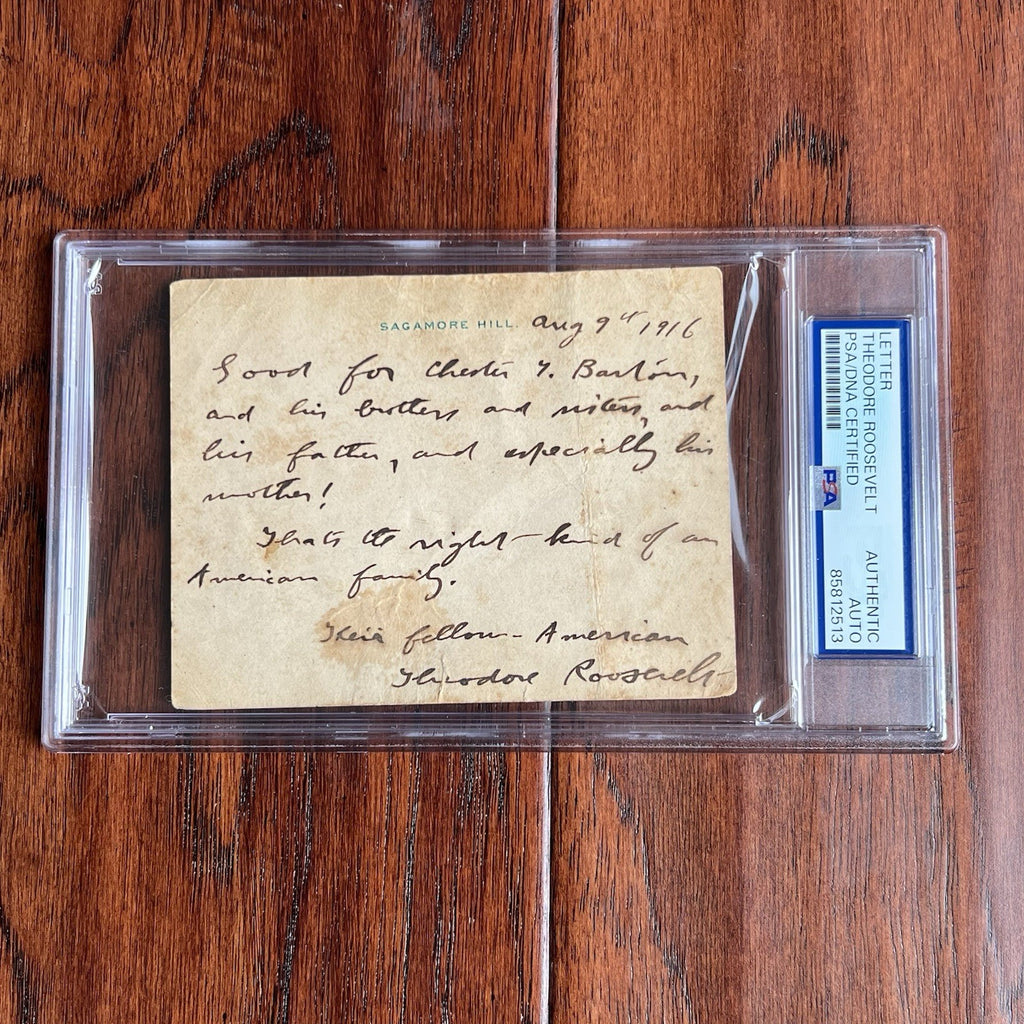 SAGAMORE HILL. Aug 9th 1916
Good for Chester Y. Barton,
and his brothers and sisters, and
his father, and especially his
mother!
Thats the right kind of an
American family.
Their fellow-American
Theodore Roosevelt
LETTER
THEODORE ROOSEVELT
PSA/DNA CERTIFIED
PSA
AUTHENTIC
AUTO
85812513